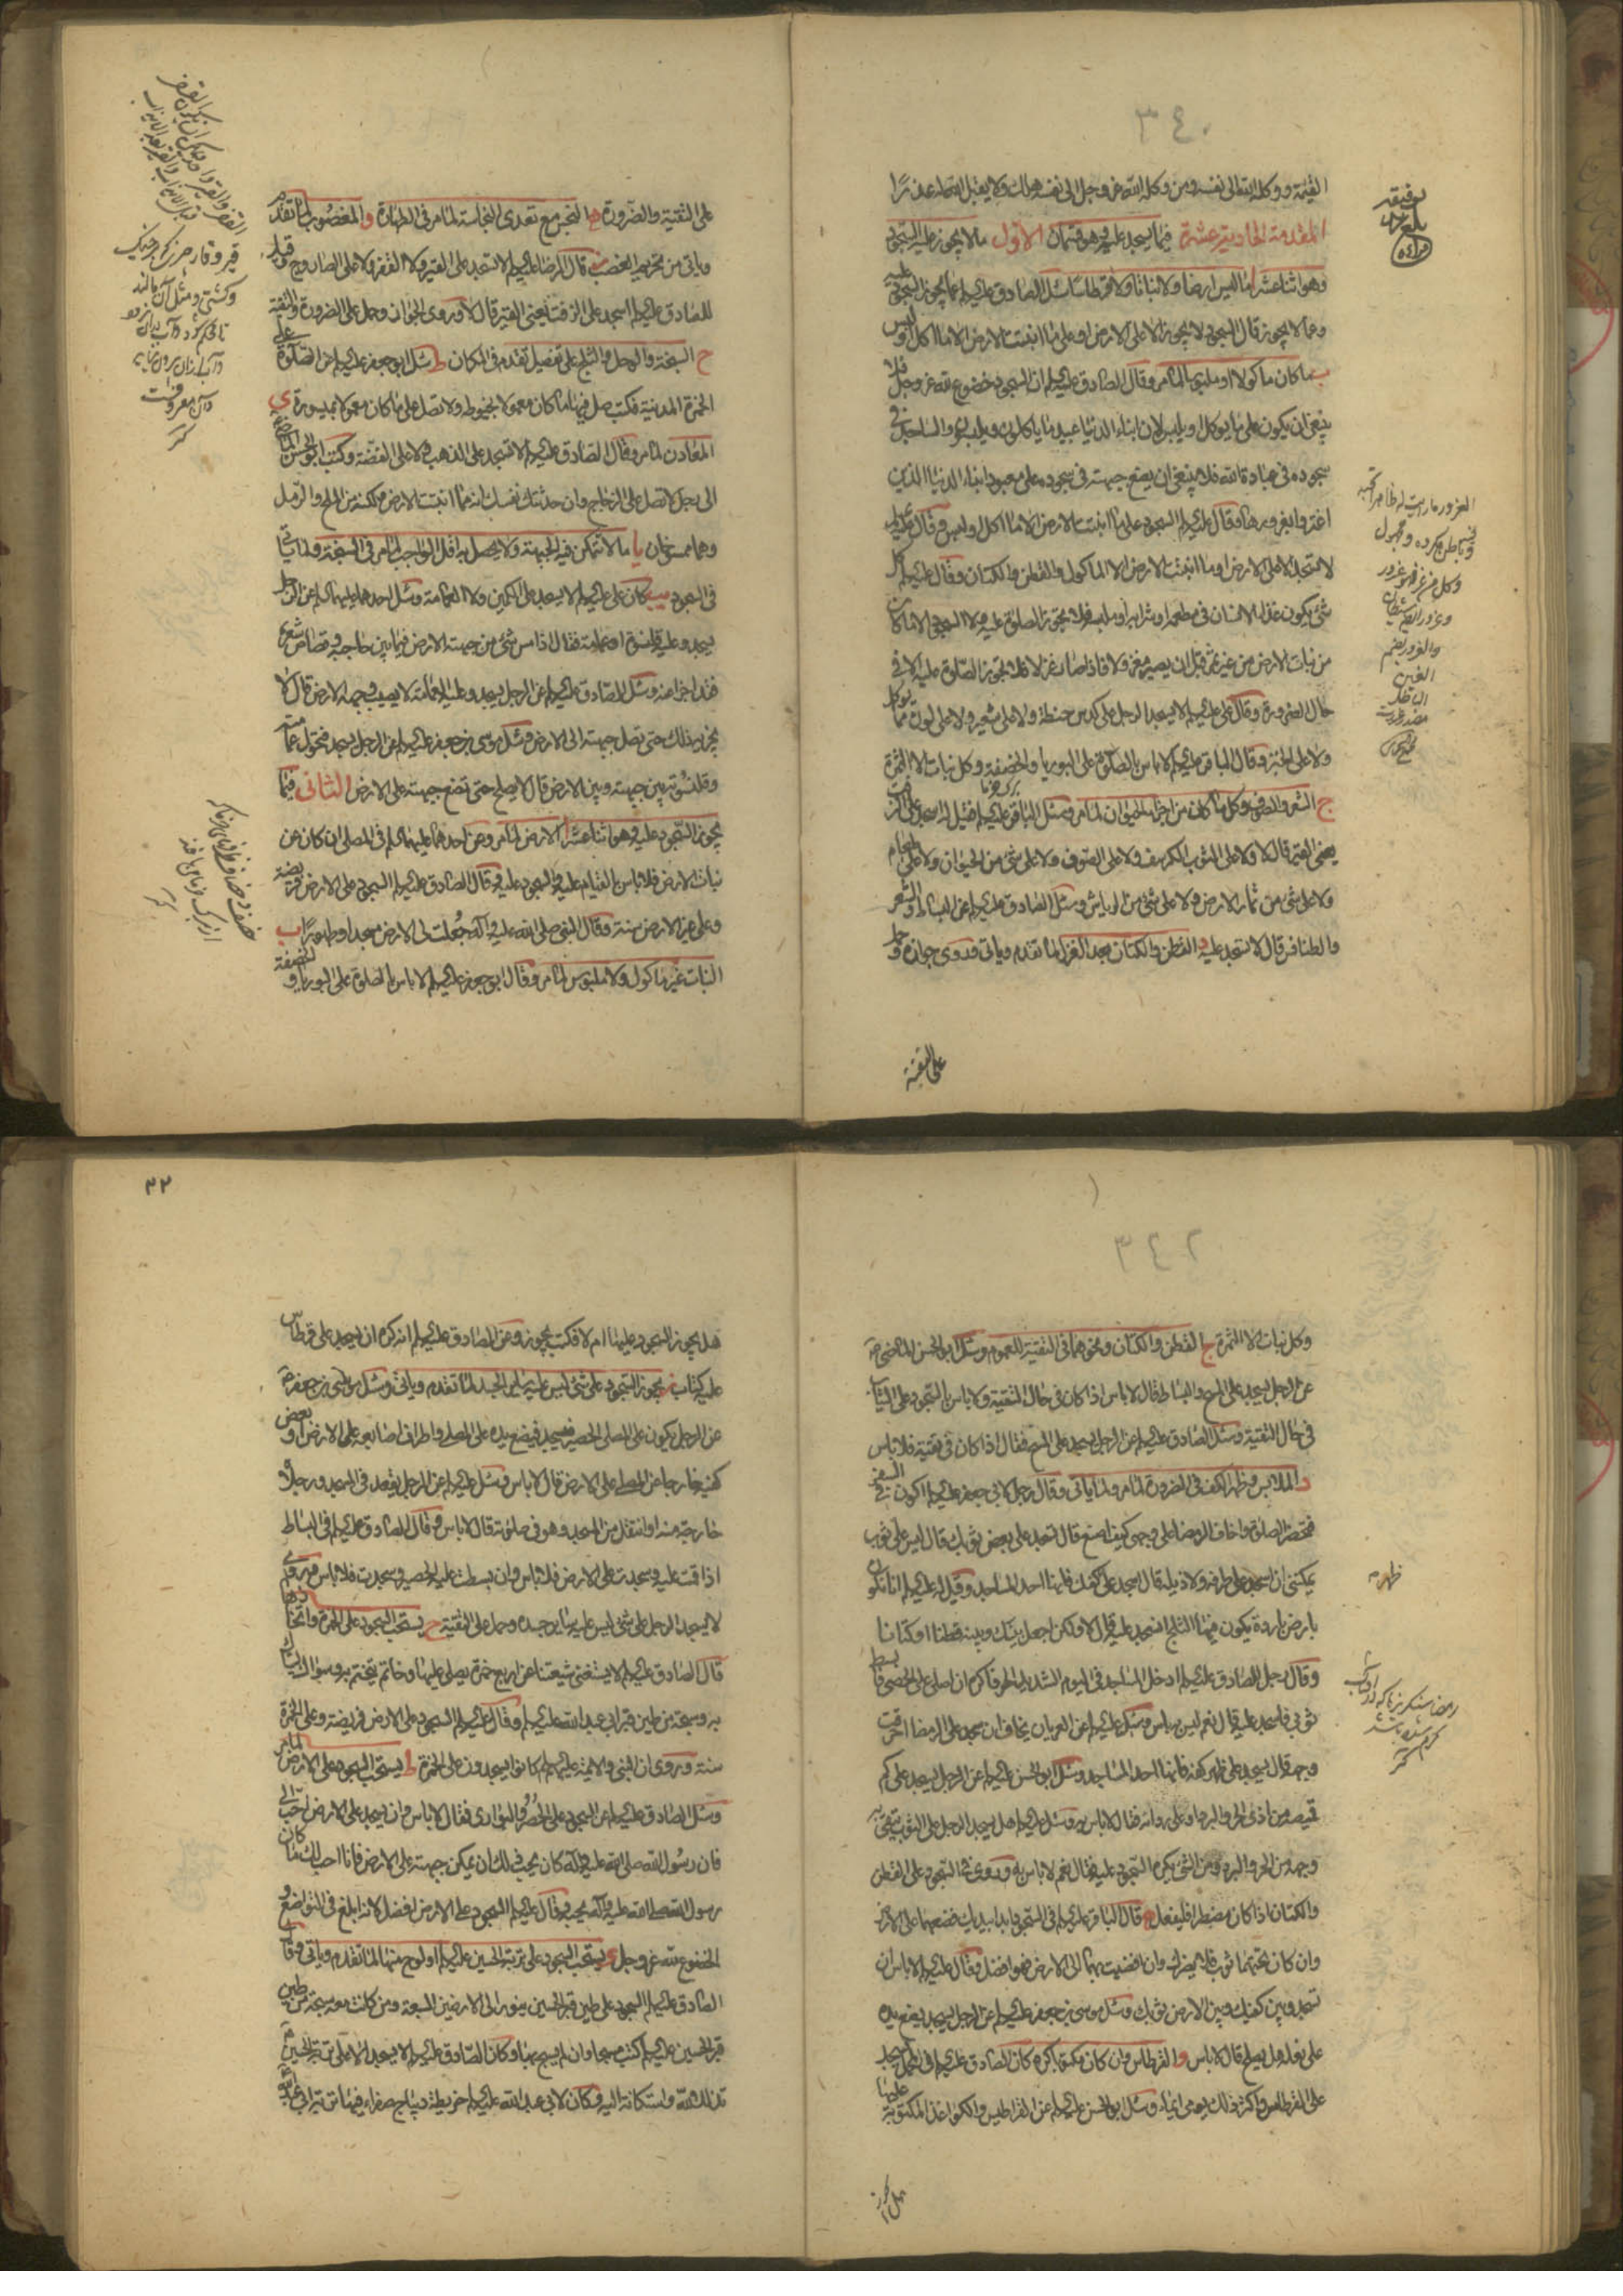 ٣٤٠
القيمة ووكله الله الى نفسه ومن وكله الله عز وجل الى نفسه هلك ولا يقبل الله له عذرا
المقدمة الحادية عشرة فيما يسجد عليه وهو قسمان الاول ما لا يجوز عليه السجود
وهو اثنا عشر ا ما ليس ارضا ولا نباتا ولا قرطاسا سئل الصادق عليه السلم عما يجوز السجود عليه
وعما لا يجوز قال السجود لا يجوز الا على الارض او على ما انبتت الارض الا ما اكل او لبس
ب ما كان ماكولا او ملبوسا لما مر وقال الصادق عليه السلم ان السجود خضوع لله عز وجل فلا
ينبغي ان يكون على ما يوكل او يلبس لان ابناء الدنيا عبيد ما ياكلون ويلبسون والساجد في
سجوده في عبادة الله فلا ينبغي ان يضع جبهته في سجوده على معبود ابناء الدنيا الذين
اغتروا بغرورها وقال عليه السلم السجود على ما انبتت الارض الا ما اكل او لبس وقال عليه السلم
لا تسجد الا على الارض او ما انبتت الارض الا الماكول والقطن والكتان وقال عليه السلم كل
شئ يكون غذاء الانسان في مطعمه او مشربه او ملبسه فلا تجوز الصلوة عليه ولا السجود الا ما كان
من نبات الارض من غير ثمر قبل ان يصير مغزولا فاذا صار غزلا فلا تجوز الصلوة عليه الا في
حال الضرورة وقال على عليه السلم لا يسجد الرجل على كدس حنطة ولا على شعير ولا على لون مما يوكل
ولا على الخبز وقال الباقر عليه السلم لا باس بالصلوة على البوريا والخصفة وكل نبات الا الثمرة
ج الشعر والصوف وكل ما كان من اجزاء الحيوان لما مر وسئل الباقر عليه السلم فقيل له اسجد على الزفت
يعني القير قال لا ولا على الثوب الكرسف ولا على الصوف ولا على شئ من الحيوان ولا على طعام
ولا على شئ من ثمار الارض ولا على شئ من الرياش وسئل الصادق عليه السلم عن البساط والشعر
والطنافس قال لا تسجد عليه د القطن والكتان بعد الغزل لما تقدم وياتي وروى جوازه وحمل
على التقية
على التقية والضرورة ه النجس مع تعدى النجاسة لما مر في الطهارة و المغصوب لما تقدم
وياتي من تحريم الغصب ز قال الرضا عليه السلم لا تسجد على القير ولا القفر ولا على الصاروج وقيل
للصادق عليه السلم اسجد على الزفت يعني القير قال لا وروى الجواز وحمل على الضرورة والتقية
ح السبخة والوحل والثلج على تفصيل تقدم في المكان ط سئل ابو جعفر عليه السلم عن الصلوة على
الخمرة المدنية فكتب صل فيها ما كان معمولا بخيوطه ولا تصل على ما كان معمولا بسيورة ي
المعادن لما مر وقال الصادق عليه السلم لا تسجد على الذهب ولا على الفضة وكتب ابو الحسن الماضي
الى رجل لا تصل على الزجاج وان حدثتك نفسك انه مما انبتت الارض ولكنه من الملح والرمل
وهما ممسوخان يا ما لا تتمكن فيه الجبهة ولا يحصل به اقل الواجب لما مر في السبخة ولما ياتي
في السجود يب كان على عليه السلم لا يسجد على الكمين ولا العمامة وسئل احدهما عليهما السلم عن الرجل
يسجد وعليه قلنسوة او عمامة فقال اذا مس شئ من جبهته الارض فيما بين حاجبيه وقصاص شعره
فقد اجزأ عنه وسئل الصادق عليه السلم عن الرجل يسجد وعليه العمامة لا يصيب وجهه الارض قال لا
يجزيه ذلك حتى تصل جبهته الى الارض وسئل موسى بن جعفر عليه السلم عن الرجل يسجد فتحول عمامته
وقلنسوته بين جبهته وبين الارض قال لا يصلح حتى تضع جبهته على الارض الثاني فيما
يجوز السجود عليه وهو اثنا عشر ا الارض لما مر وعن احدهما عليهما السلم في المصلى ان كان من
نبات الارض فلا باس بالقيام عليه والسجود عليه وقال الصادق عليه السلم السجود على الارض فريضة
وعلى غير الارض سنة وقال النبي صلى الله عليه وآله جعلت لي الارض مسجدا وطهورا ب
النبات غير ماكول ولا ملبوس لما مر وقال ابو جعفر عليه السلم لا باس بالصلوة على البوريا والخصفة
٣٤٢
وكل نبات الا الثمرة ج القطن والكتان ونحوهما في التقية للعموم وسئل ابو الحسن الماضي
عن الرجل يسجد على المسح والبساط قال لا باس اذا كان في حال التقية ولا باس بالسجود على الثياب
في حال التقية وسئل الصادق عليه السلم عن الرجل يسجد على المسح فقال اذا كان في تقية فلا باس
د الملابس وظهر الكف في الضرورة لما مر ولما ياتي وقال رجل لابي جعفر عليه السلم اكون في السفر
فتحضر الصلوة واخاف الرمضاء على وجهي كيف اصنع قال تسجد على بعض ثوبك قال ليس على ثوب
يمكنني ان اسجد على طرفه ولا ذيله قال اسجد على ظهر كفك فانها احد المساجد وقيل له عليه السلم انا نكون
بارض باردة يكون فيها الثلج افنسجد عليه قال لا ولكن اجعل بينك وبينه قطنا او كتانا
وقال رجل للصادق عليه السلم ادخل المسجد في اليوم الشديد الحر فاكره ان اصلي على الحصى فابسط
ثوبي فاسجد عليه قال نعم ليس به باس وسئل عليه السلم عن العريان يخاف ان سجد على الرمضاء احرقت
وجهه قال يسجد على ظهر كفه فانها احد المساجد وسئل ابو الحسن عليه السلم عن الرجل يسجد على كم
قميصه من اذى الحر والبرد او على ردائه فقال لا باس به وسئل عليه السلم هل يسجد الرجل على الثوب يتقي به
وجهه من الحر والبرد ومن الشئ يكره السجود عليه فقال نعم لا باس به وروى في السجود على القطن
والكتان اذا كان مضطرا فليفعل ه قال الباقر عليه السلم في السجود ابدا بيديك فضعهما على الارض
وان كان تحتهما ثوب فلا يضرك وان افضيت بهما الى الارض فهو افضل وقال عليه السلم لا باس ان
تسجد وبين كفيك وبين الارض ثوبك وسئل موسى بن جعفر عليه السلم عن الرجل يسجد يضع يده
على نعله هل يصلح قال لا باس و القرطاس وان كان مكتوبا كره كان الصادق عليه السلم في المحمل يسجد
على القرطاس واكثر ذلك يومي ايماء وسئل ابو الحسن عليه السلم عن القراطيس والكواغذ المكتوبة عليها
هل يجوز
٣٢
هل يجوز السجود عليها ام لا فكتب يجوز وعن الصادق عليه السلم انه كره ان يسجد على قرطاس
عليه كتاب ز يجوز السجود على شئ ليس عليه سائر الجسد لما تقدم وياتي وسئل موسى بن جعفر
عن الرجل يكون على المصلى او الحصير فيسجد فيضع يده على المصلى واطراف اصابعه على الارض او بعض
كفيه خارجا عن المصلى على الارض قال لا باس وسئل عليه السلم عن الرجل يقعد في المسجد ورجلاه
خارجة منه او انتقل من المسجد وهو في صلوته قال لا باس وقال الصادق عليه السلم في البساط
اذا قمت عليه وسجدت على الارض فلا باس وان بسطت عليه الحصير وسجدت فلا باس وروى
لا يسجد الرجل على شئ ليس عليه سائر جسده وحمل على التقية ح يستحب السجود على الخمرة واتخاذها
قال الصادق عليه السلم لا يستغني شيعتنا عن اربع خمرة يصلي عليها وخاتم يتختم به وسواك يستاك
به وسبحة من طين قبر ابي عبد الله عليه السلم وقال عليه السلم السجود على الارض فريضة وعلى الخمرة
سنة وروى ان النبي والائمة عليهم السلم كانوا يسجدون على الخمرة ط يستحب السجود على الارض لما مر
وسئل الصادق عليه السلم عن السجود على الحصر والبواري فقال لا باس وان يسجد على الارض احب الى
فان رسول الله صلى الله عليه وآله كان يحب ذلك ان يمكن جبهته على الارض فانا احب لك ما كان
رسول الله صلى الله عليه وآله يحبه وقال عليه السلم السجود على الارض افضل لانه ابلغ في التواضع و
الخضوع لله عز وجل ي يستحب السجود على تربة الحسين عليه السلم او لوح منها لما تقدم وياتي وقال
الصادق عليه السلم السجود على طين قبر الحسين ينور الى الارضين السبعة ومن كانت معه سبحة من طين
قبر الحسين عليه السلم كتب مسبحا وان لم يسبح بها وكان الصادق عليه السلم لا يسجد الا على تربة الحسين
تذللا لله واستكانة اليه وكان لابي عبد الله عليه السلم خريطة ديباج صفراء فيها تربة ابي عبد الله